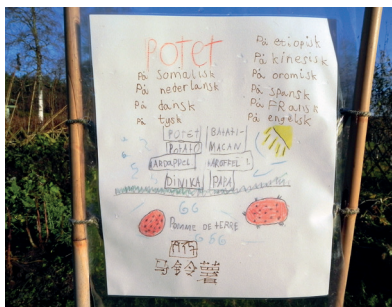 POTET
På Somalisk
På nederlansk
På dansk
På tysk
På etiopisk
På kinesisk
På oromisk
På spansk
På FRansk
På engelsk
POTET
BATATI-
POTATO
MACAN
DINIKA
PAPA
POMME DE tERRE